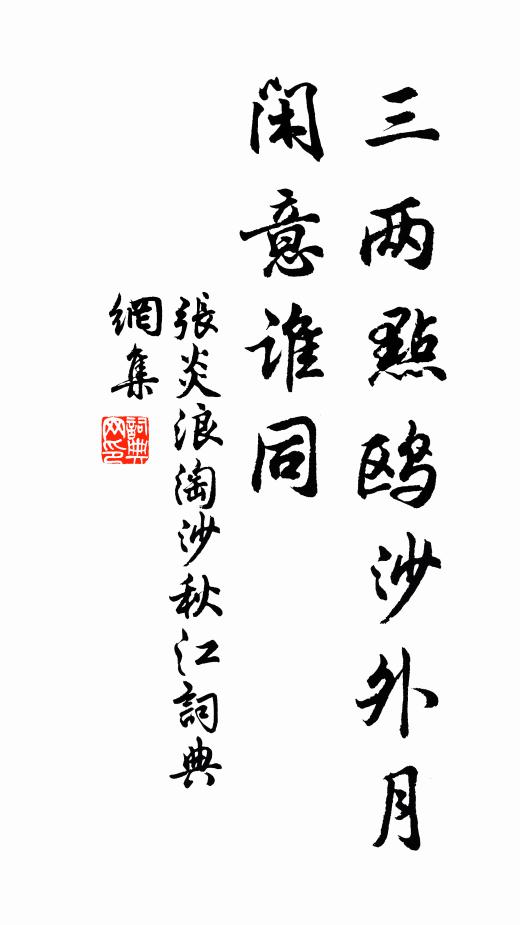 三两點鸥沙外月
閑意谁同
張炎浪淘沙秋江詞典
網集
詞典
网印